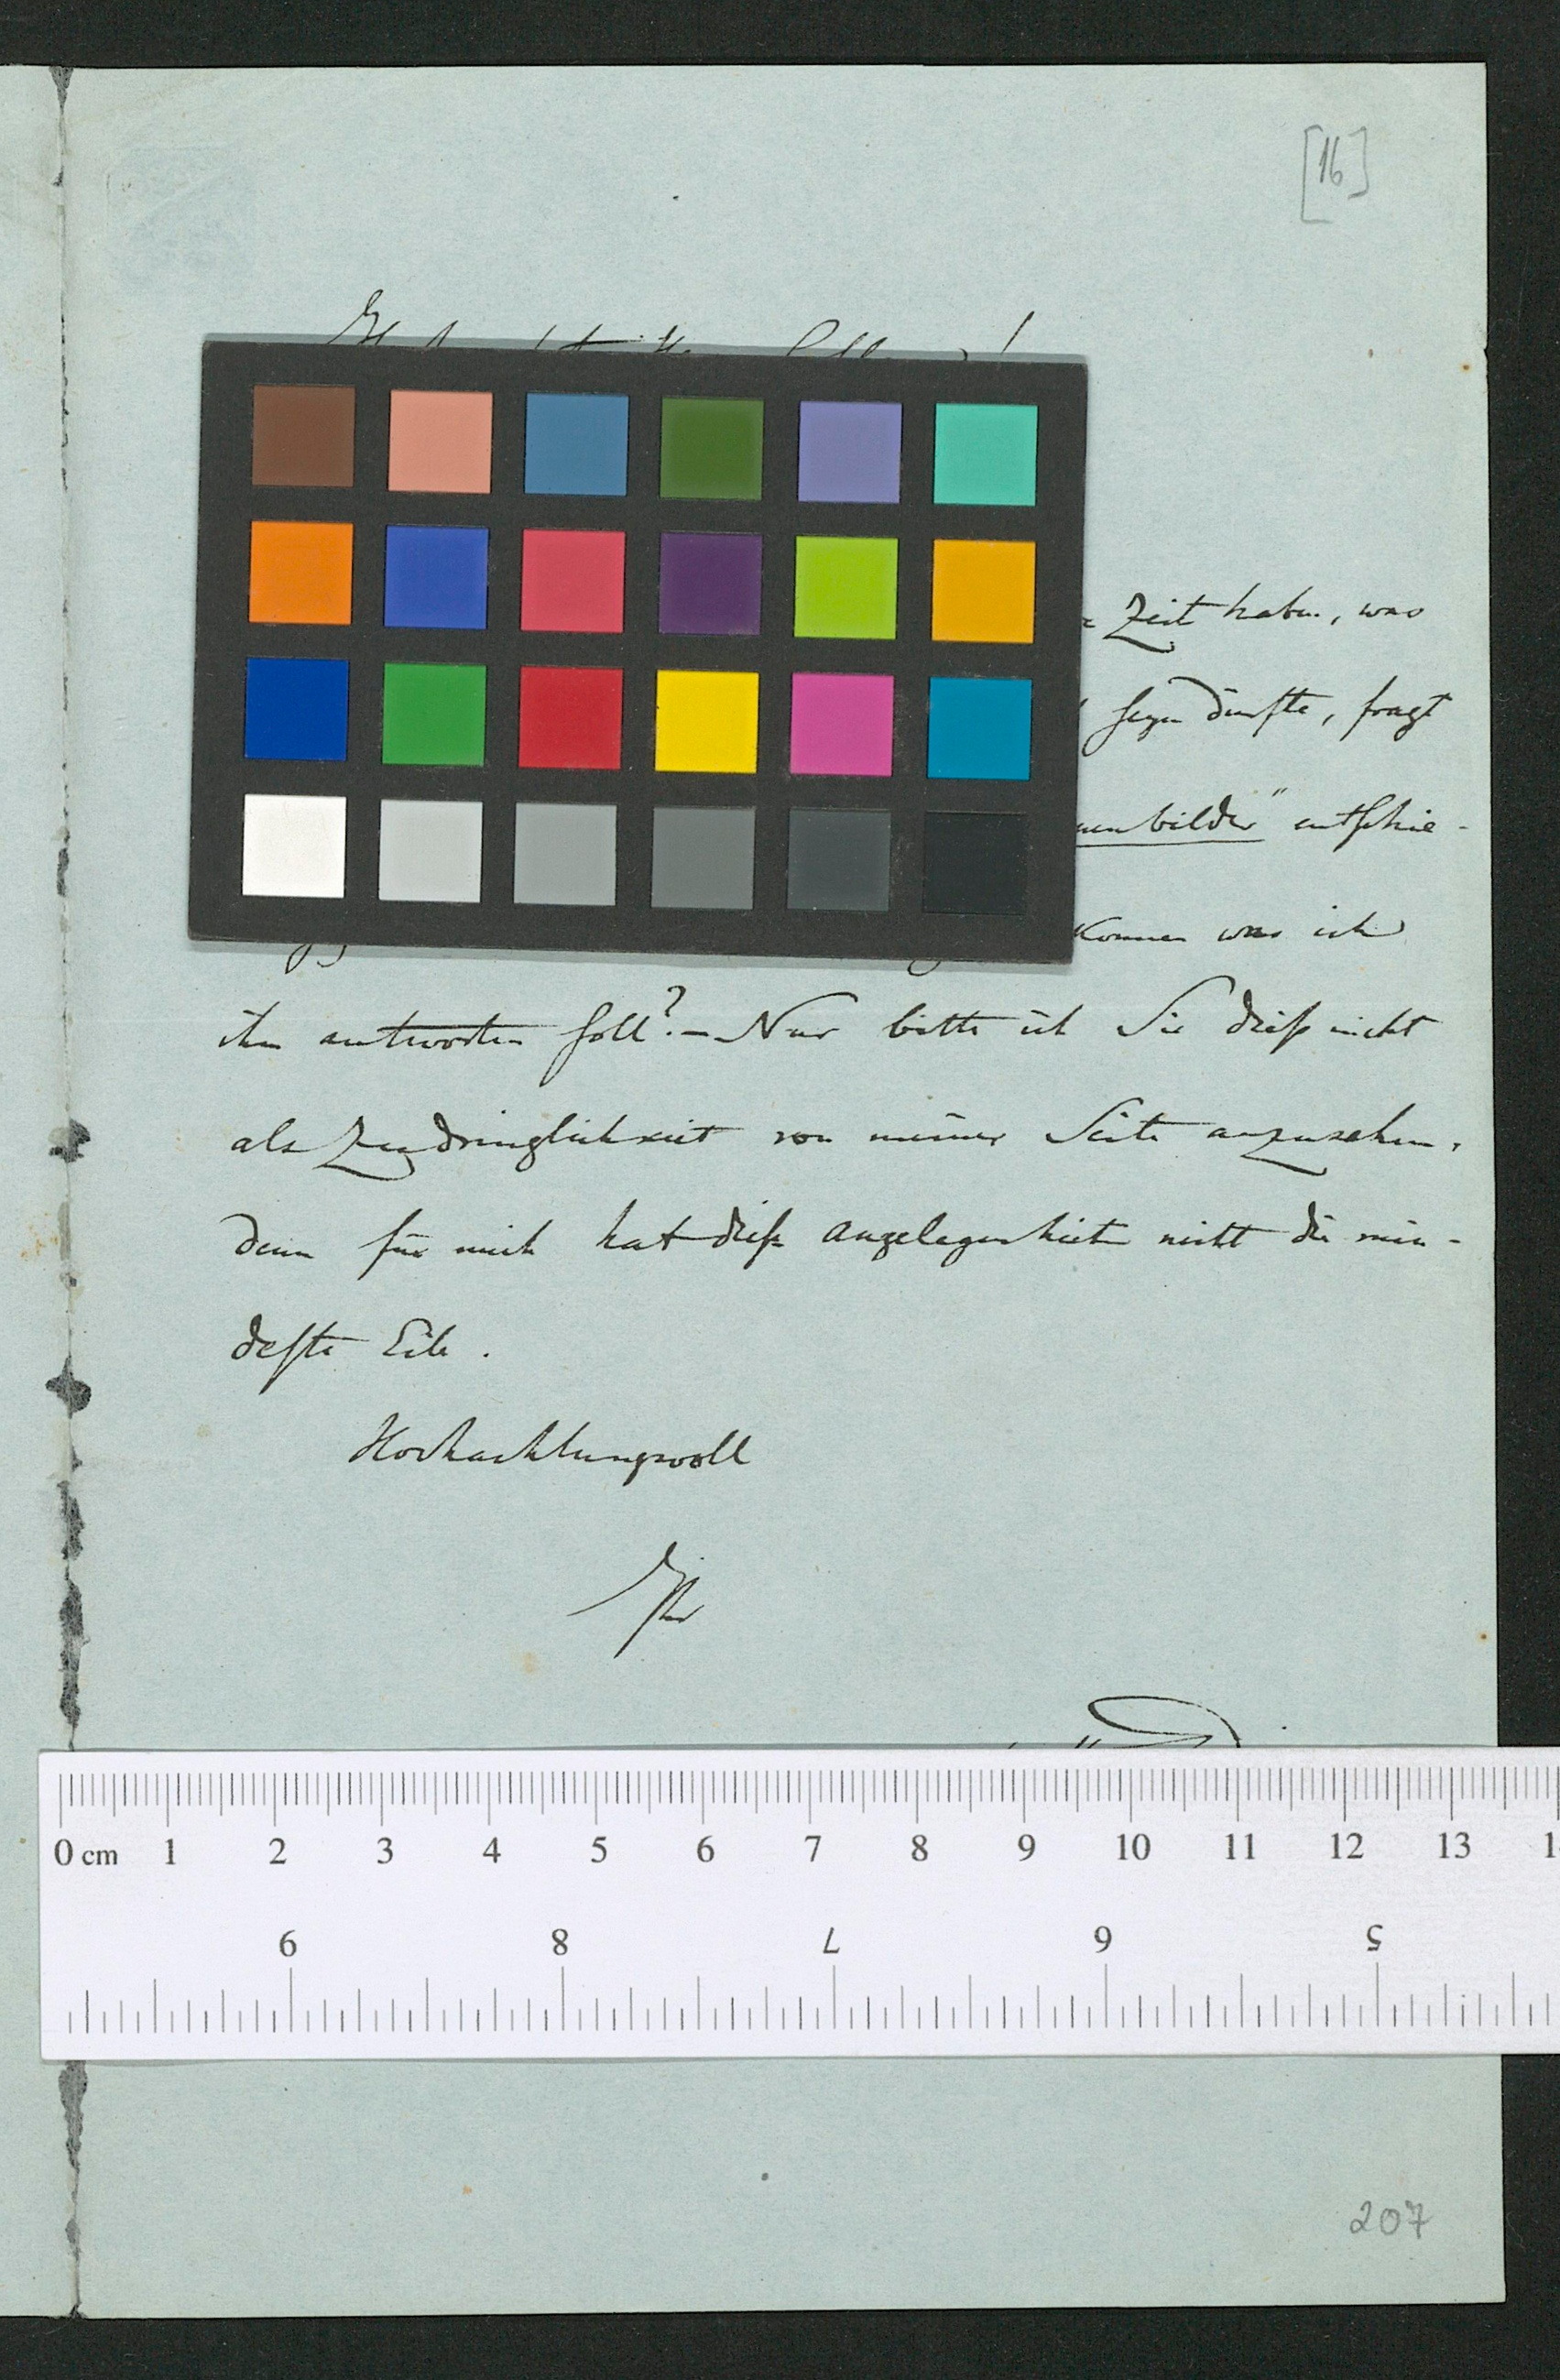 [16]
Zeit haben, was
seyn dürfte, fragt
bilder" entschie-
kommen was ich
ihm antworten soll? – Nur bitte ich Sie dieß nicht
als Zudringlichkeit von meiner Seite anzusehen,
denn für mich hat diese Angelegenheit nicht die min-
deste Eile.
Hochachtungsvoll
Ihr
0 cm 1 2 3 4 5 6 7 8 9 10 11 12 13
9 8 7 6 5
207